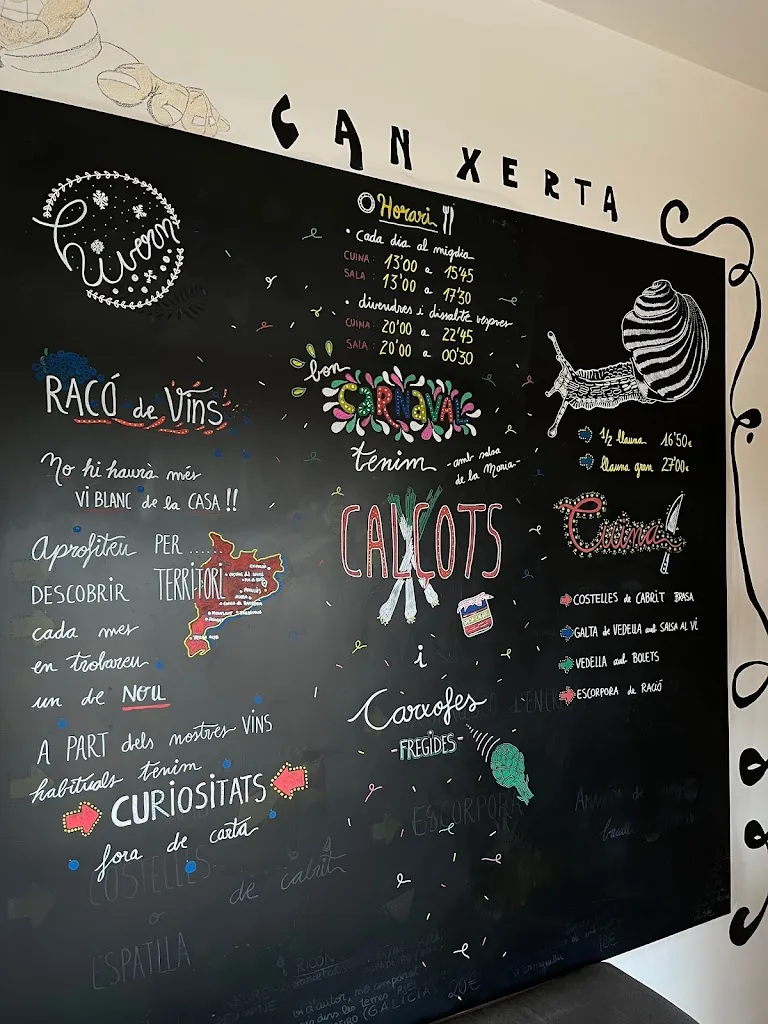 CAN XERTA
hivern
RACÓ de Vins
No hi haurà més
VI BLANC de la CASA !!
Aprofiteu PER ....
DESCOBRIR TERRITORI
cada mes
en trobareu
un de NOU
A PART dels nostres VINS
habituals tenim
CURIOSITATS
fora de carta
COSTELLES
de cabrit
o
ESPATLLA
Horari
• cada dia al migdia
CUINA: 13'00 a 15'45
SALA: 13'00 a 17'30
• divendres i dissabte vespres
CUINA: 20'00 a 22'45
SALA: 20'00 a 00'30
bon
CARNAVAL
tenim -amb salsa
de la Maria-
CALÇOTS
i
Carxofes
-FREGIDES-
ESCORPORA
1/2 llauna 16'50€
llauna gran 27'00€
Cuina
COSTELLES de CABRIT BRASA
GALTA de VEDELLA amb SALSA AL VI
VEDELLA amb BOLETS
ESCORPORA de RACIÓ
(GALICIA) 20€
18€